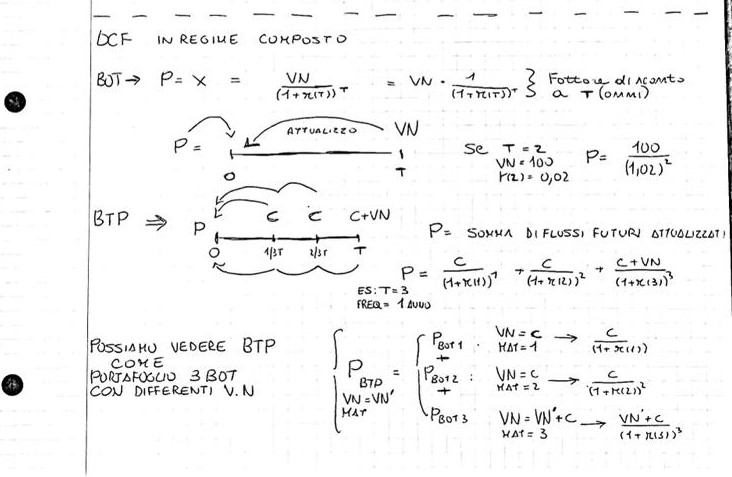 DCF IN REGIME COMPOSTO
BOT → P = X = VN / (1+r(T))^T = VN · 1 / (1+r(T))^T } Fattore di sconto a T (anni)
P = ATTUALIZZO VN
0 T
Se T = 2
VN = 100
r(2) = 0,02
P = 100 / (1,02)^2
BTP ⇒ P C C C+VN
0 1/3T 2/3T T
P = SOMMA DI FLUSSI FUTURI ATTUALIZZATI
ES: T=3
FREQ = 1 ANNO
P = C / (1+r(1))^1 + C / (1+r(2))^2 + C+VN / (1+r(3))^3
POSSIAMO VEDERE BTP
COME
PORTAFOGLIO 3 BOT
CON DIFFERENTI V.N
P BTP =
VN=VN'
MAT
P BOT1 : VN = C MAT=1 → C / (1+r(1))
+
P BOT2 : VN = C MAT=2 → C / (1+r(2))^2
+
P BOT3 VN = VN'+C MAT=3 → VN'+C / (1+r(3))^3